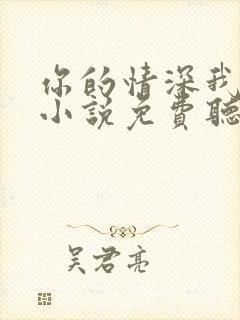 你的情深我
小说免費聽
吴君亮